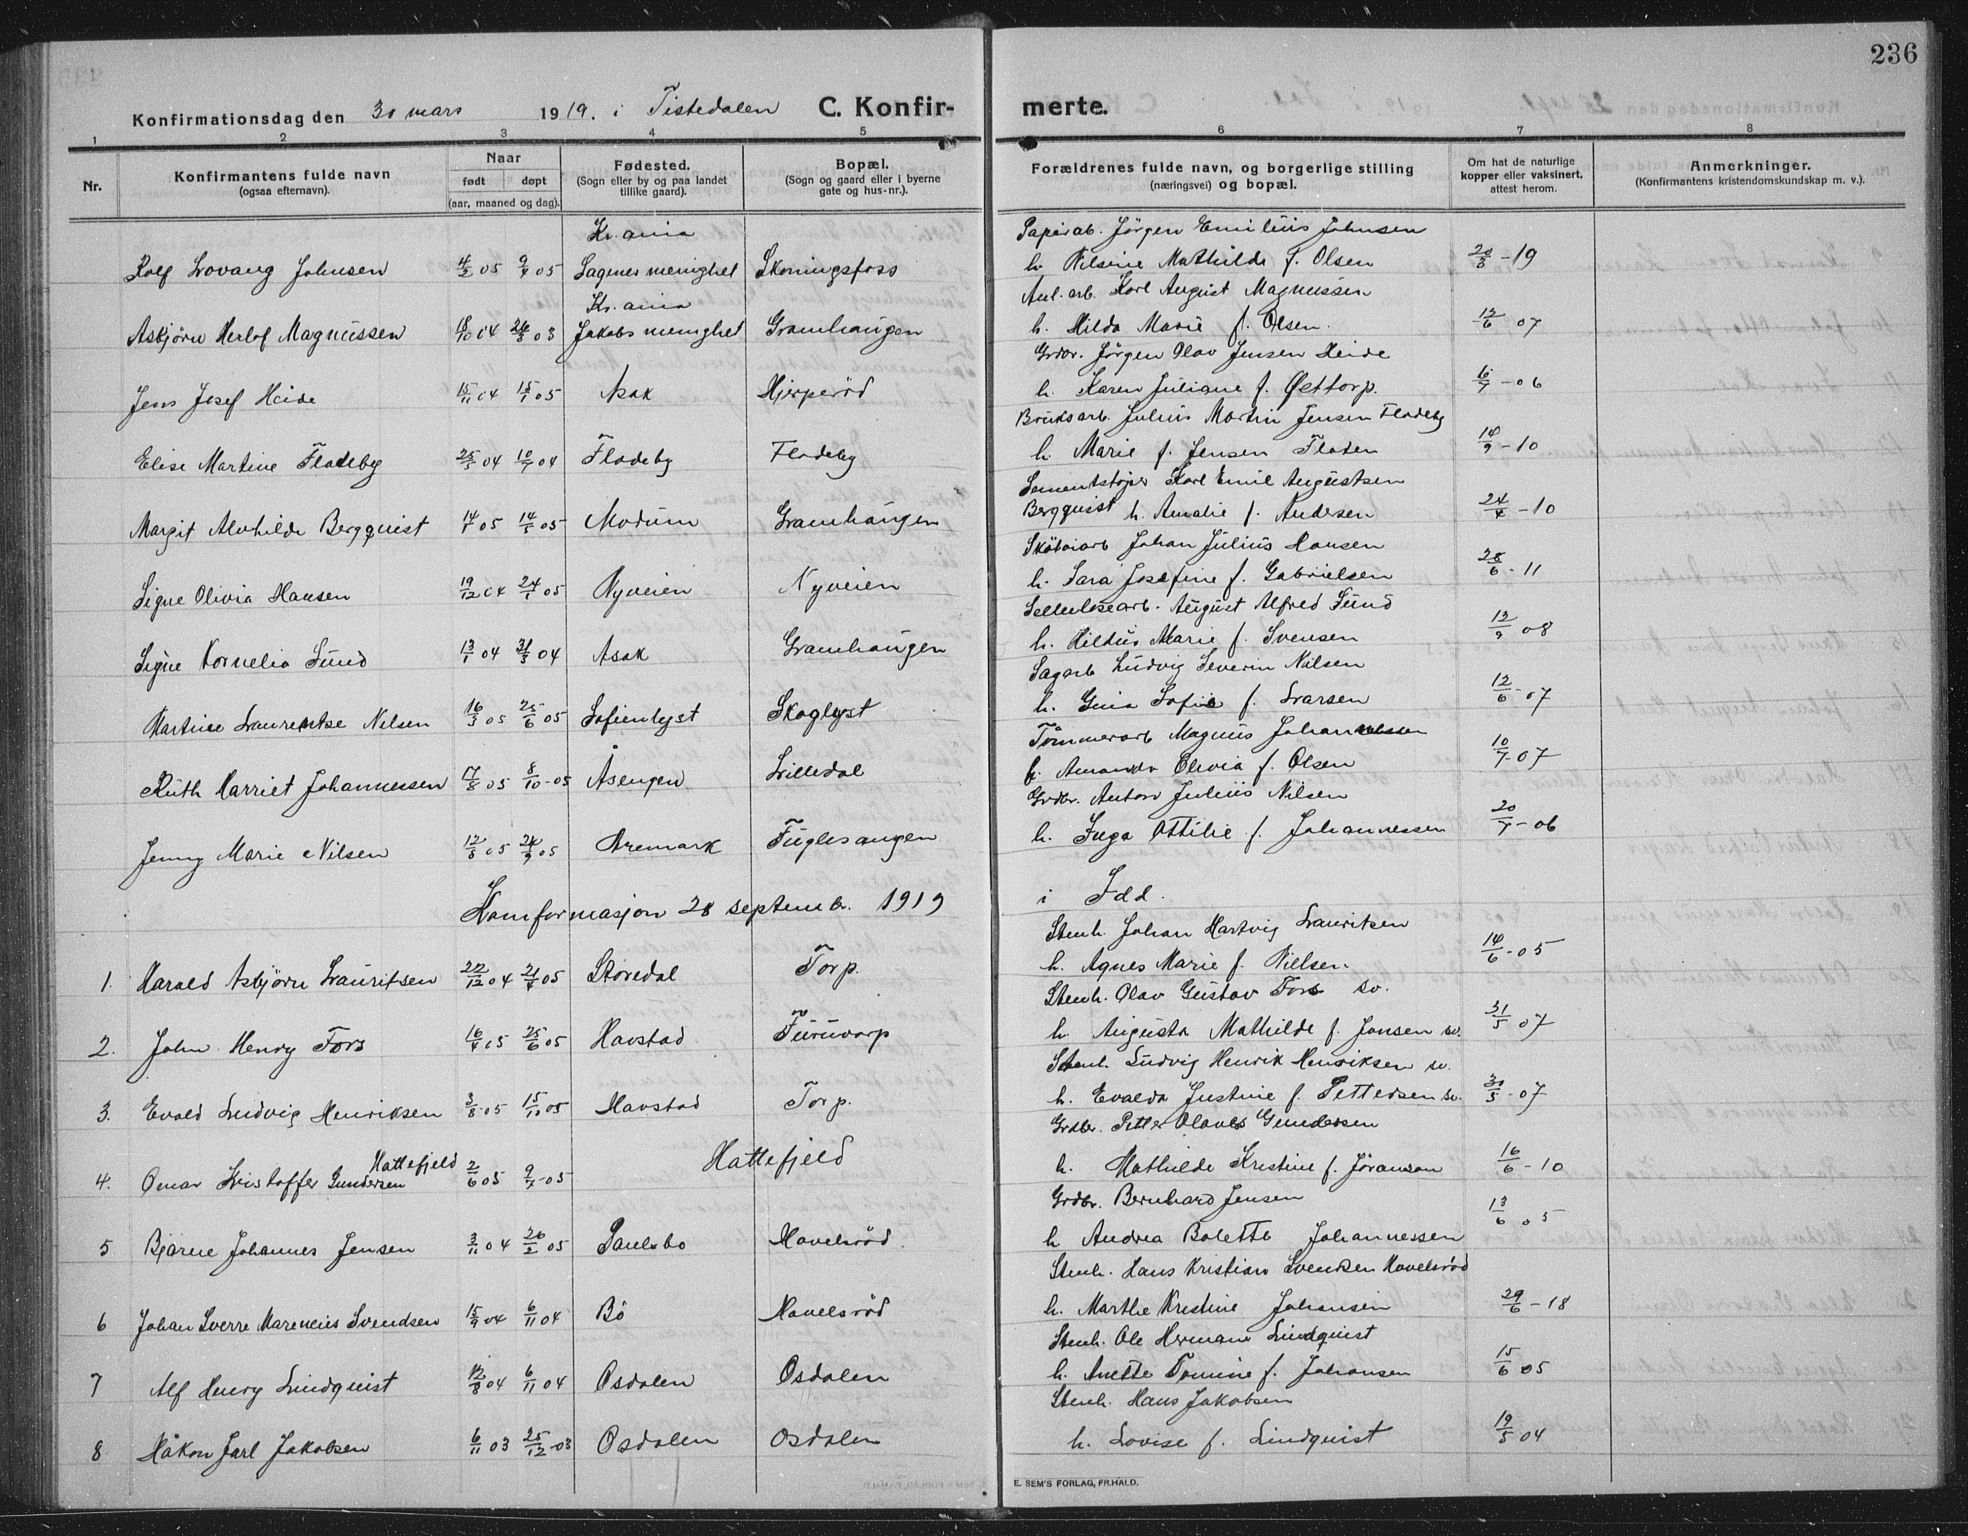 236
Konfirmationsdag den 30 mars 1919. i Tistedalen C. Konfir-merte.
1 2 3 4 5 6 7 8
Nr. Konfirmantens fulde navn (ogsaa efternavn). Naar født døpt (aar, maaned og dag). Fødested. (Sogn eller by og paa landet tillike gaard). Bopæl. (Sogn og gaard eller i byerne gate og hus-nr.). Forældrenes fulde navn, og borgerlige stilling (næringsvei) og bopæl. Om hat de naturlige kopper eller vaksinert, attest herom. Anmerkninger. (Konfirmantens kristendomskundskap m. v.).
Kr.ania Papirab. Jörgen Emilius Johnsen
Rolf Lovang Johnsen 4/2 05 9/4 05 Sagenes menighet Skoningsfoss h. Nilsine Mathilde f. Olsen -19
Kr.ania Anl.arb. Karl August Magnussen
Asbjörn Herlof Magnussen 18/10 04 26/3 03 Jakobs menighet Gramhaugen h. Hilda Marie f. Olsen. 12/6 07
Grdbr. Jörgen Olav Jensen Heide
Jens Josef Heide 15/11 04 15/1 05 Asak Hjerperöd h. Karen Juliane f. Östtorp. 6/7 - 06
Bruksarb. Julius Martin Jensen Flodeby
Elise Martine Flodeby 25/5 04 10/7 04 Flodeby Flodeby h. Marie f. Jensen Floden 14/9 - 10
Sementstöper Karl Emil Augustsen
Margit Alvhilde Bergquist 14/1 05 14/5 05 Modum Gramhaugen Bergquist h. Amalie f. Andersen 24/4 - 10
Skötoiarb Johan Julius Hansen
Signe Olivia Hansen 19/12 04 24/1 05 Nyveien Nyveien h. Sara Josefine f. Gabrielsen 28/6 - 11
Sellulosearb. August Alfred Sund
Signe Kornelia Sund 13/1 04 31/3 04 Asak Gramhaugen h. Hildus Marie f. Svensen 12/9 08
Sagarb Ludvig Severin Nilsen
Martine Laurentse Nilsen 16/3 05 25/6 05 Sofienlyst Skoglyst h. Gina Sofie f. Larsen 12/6 - 07
Tömmerarb Magnus Johannessen
Ruth Harriet Johannessen 17/8 05 8/10 - 05 Åsengen Lilledal h. Amanda Elivia f. Olsen 10/7 - 07
Grdbr. Anton Julius Nilsen
Jenny Marie Nilsen 12/8 05 24/9 05 Aremark Fuglesangen h. Inga Ottilie f. Johannessen 20/7 - 06
Komformasjon 28 septemb. 1919 i Idd.
Stenh. Johan Hartvig Lauritsen
1. Harald Asbjörn Lauritsen 22/12 04 21/4 05 Storedal Torp. h. Agnes Marie f. Nilsen. 14/6 - 05
Stenh. Olav Gustav Fors sv.
2. John Henry Fors 16/4 05 25/6 05 Havstad Furuvarp h. Augusta Mathilde f. Jansen sv. 31/5 07
Stenh. Ludvig Henrik Henriksen sv.
3. Evald Ludvig Henriksen 3/8 - 05 15/10 05 Havstad Torp. h. Evalda Justine f. Pettersen sv. 30/5 - 07
Grdbr. Petter Olaves Gundersen
4. Omar Kristoffer Gundersen Hattefjeld 2/6 05 9/7 - 05 Hattefjeld h. Mathilde Kristine f. Jöranson 16/6 - 10
Grdbr. Bernhard Jensen
5 Bjarne Johannes Jensen 3/11 04 26/2 05 Paulsbo Havelsröd. h Andrea Bolette Johannessen 13/6 05
Stenh. Hans Kristian Svendsen Havelsröd
6 Johan Sverre Marencius Svendsen 15/9 04 6/11 04 Bö Havelsröd h. Marthe Kristine Johansen 29/6 - 18
Stenh. Ole Herman Lindquist
7 Alf Henry Lindquist 12/8 04 6/11 04 Osdalen Osdalen h. Anette Tomine f. Johansen 15/6 05
Stenh. Hans Jakobsen
8 Håkon Jarl Jakobsen 6/11 03 25/12 - 03 Osdalen Osdalen h. Lovise f. Lindquist 19/5 04
E. SEM'S FORLAG, FR.HALD.